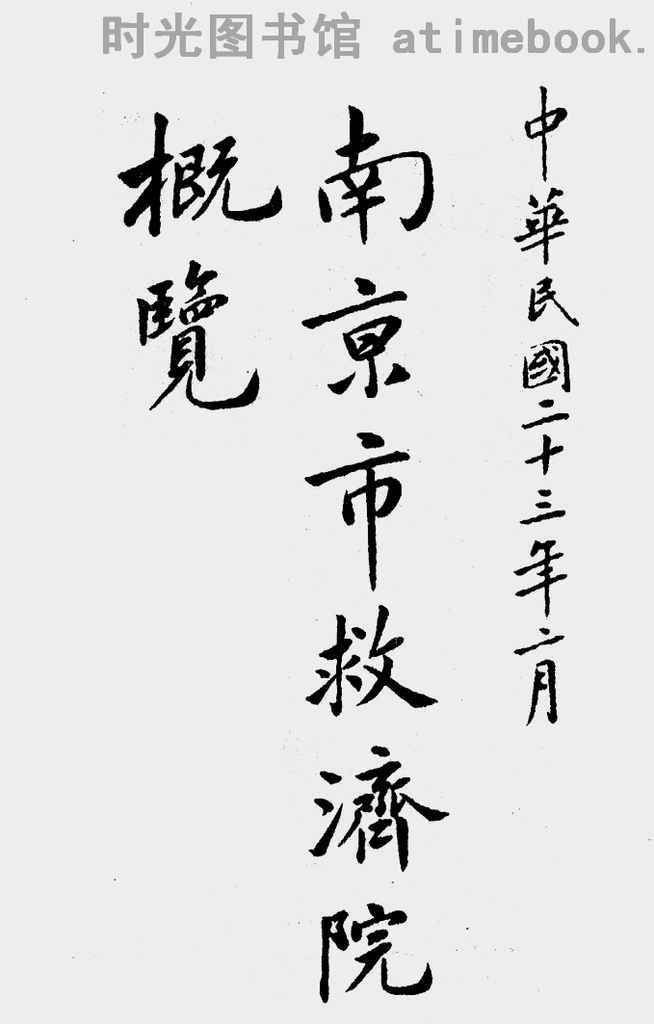 时光图书馆 atimebook.
中華民國二十三年二月
南京市救濟院
概覽